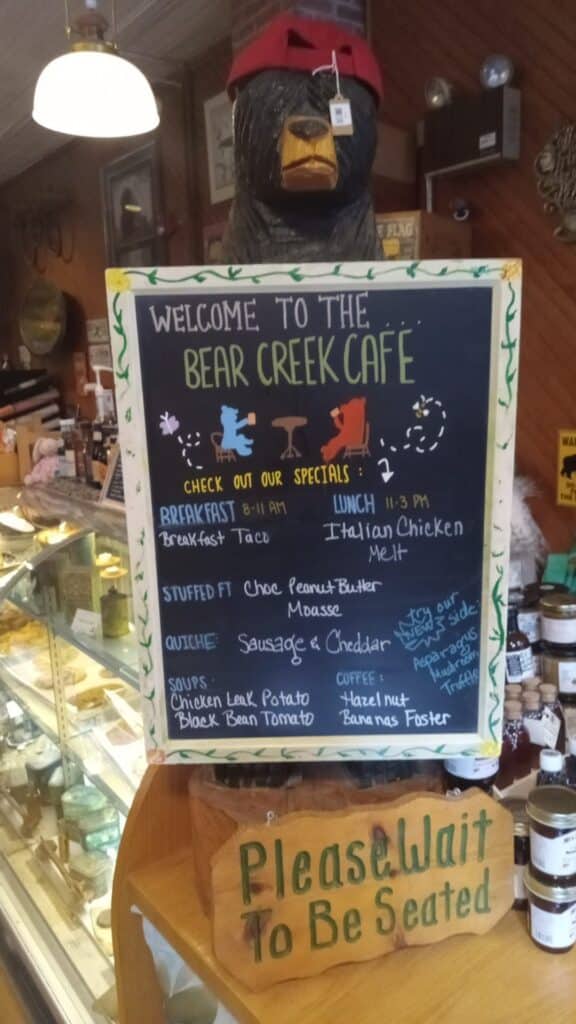 WELCOME TO THE...
BEAR CREEK CAFE
CHECK OUT OUR SPECIALS:
BREAKFAST 8-11 AM
Breakfast Taco
LUNCH 11-3 PM
Italian Chicken
Melt
STUFFED FT Choc Peanut Butter
Moasse
QUICHE: Sausage & Cheddar
try our
NEW side:
Asparagus
Mushroom
Truffle
SOUPS:
Chicken Leak Potato
Black Bean Tomato
COFFEE:
Hazelnut
Bananas Foster
Please Wait
To Be Seated
FLAG